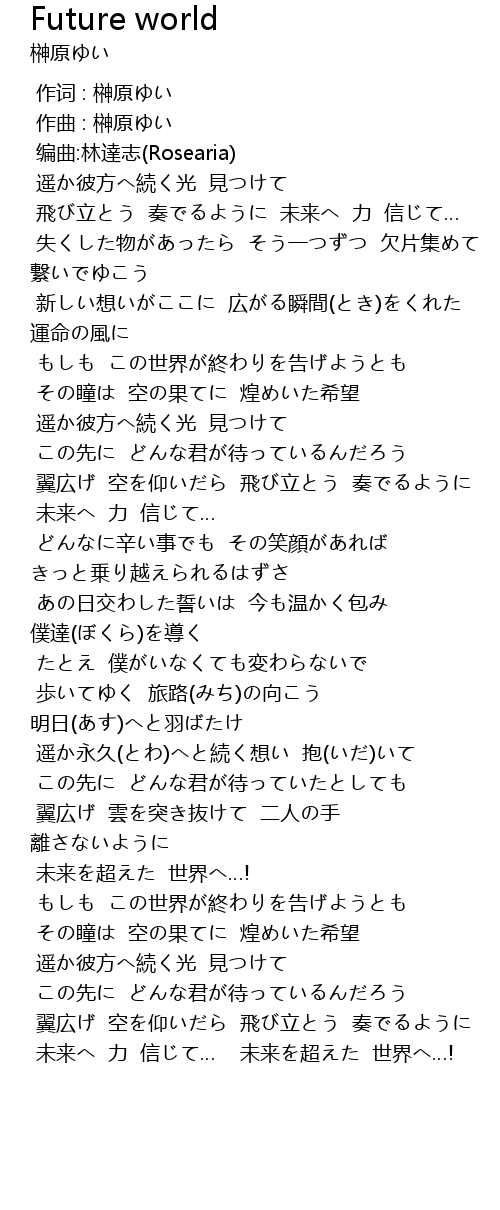 Future world
榊原ゆい
作词 : 榊原ゆい
作曲 : 榊原ゆい
编曲:林達志(Rosearia)
遥か彼方へ続く光 見つけて
飛び立とう 奏でるように 未来へ 力 信じて...
失くした物があったら そう一つずつ 欠片集めて
繋いでゆこう
新しい想いがここに 広がる瞬間(とき)をくれた
運命の風に
もしも この世界が終わりを告げようとも
その瞳は 空の果てに 煌めいた希望
遥か彼方へ続く光 見つけて
この先に どんな君が待っているんだろう
翼広げ 空を仰いだら 飛び立とう 奏でるように
未来へ 力 信じて...
どんなに辛い事でも その笑顔があれば
きっと乗り越えられるはずさ
あの日交わした誓いは 今も温かく包み
僕達(ぼくら)を導く
たとえ 僕がいなくても変わらないで
歩いてゆく 旅路(みち)の向こう
明日(あす)へと羽ばたけ
遥か永久(とわ)へと続く想い 抱(いだ)いて
この先に どんな君が待っていたとしても
翼広げ 雲を突き抜けて 二人の手
離さないように
未来を超えた 世界へ...!
もしも この世界が終わりを告げようとも
その瞳は 空の果てに 煌めいた希望
遥か彼方へ続く光 見つけて
この先に どんな君が待っているんだろう
翼広げ 空を仰いだら 飛び立とう 奏でるように
未来へ 力 信じて... 未来を超えた 世界へ...!